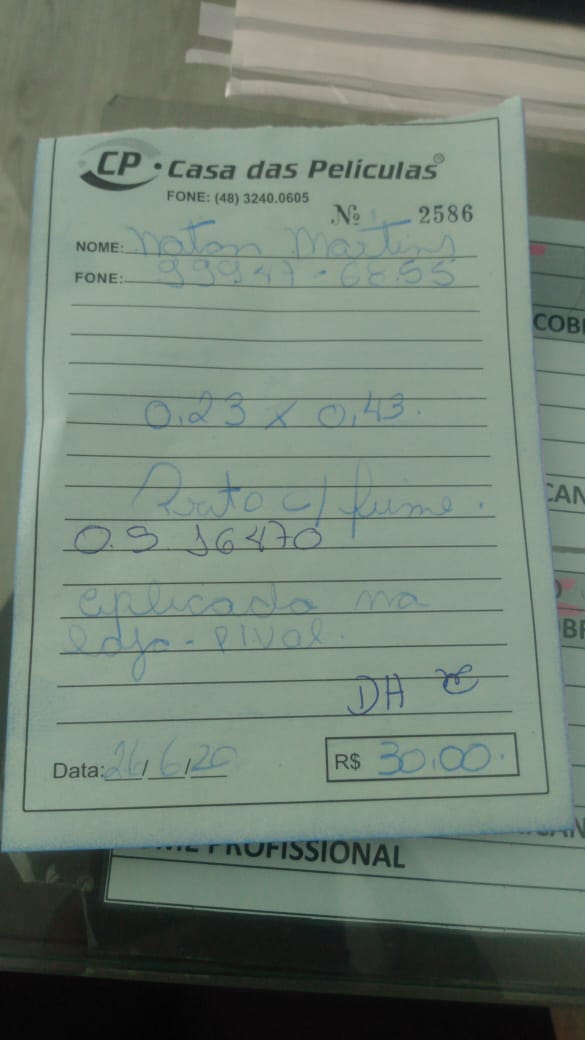 CP • Casa das Películas®
FONE: (48) 3240.0605
Nº 2586
NOME: Natan Martins
FONE: 99947-6855
0,23 x 0,43.
Prato c/ fume.
O.S. 16470
aplicada na
loja - Pival.
DH
Data: 26/6/20
R$ 30,00.
COBR
CAN
OBR
CAN
ME PROFISSIONAL